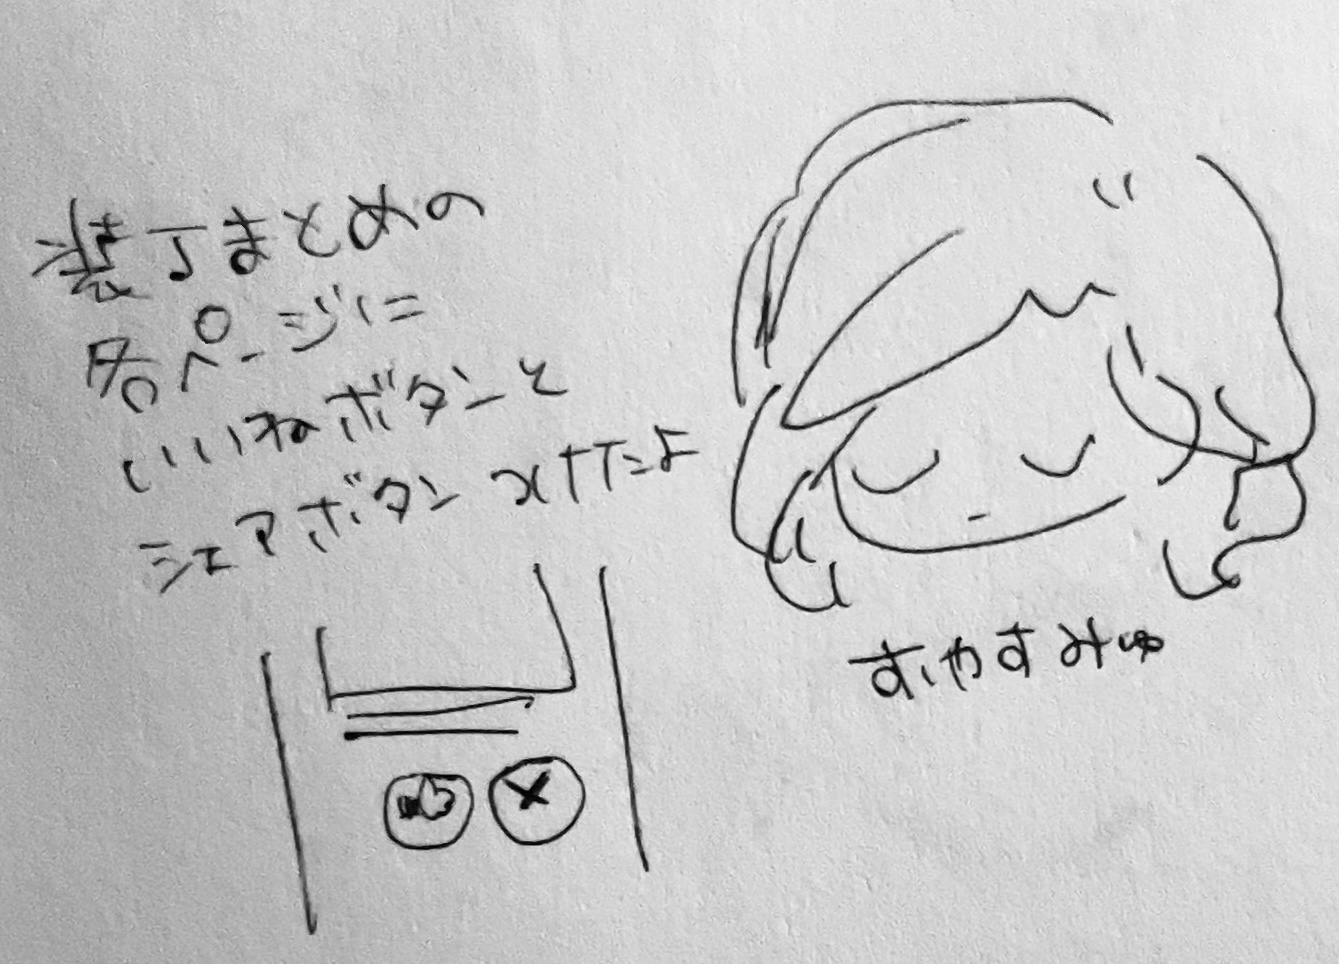 装丁まとめの
各ページに
いいねボタンと
シェアボタン
すやすみゅ